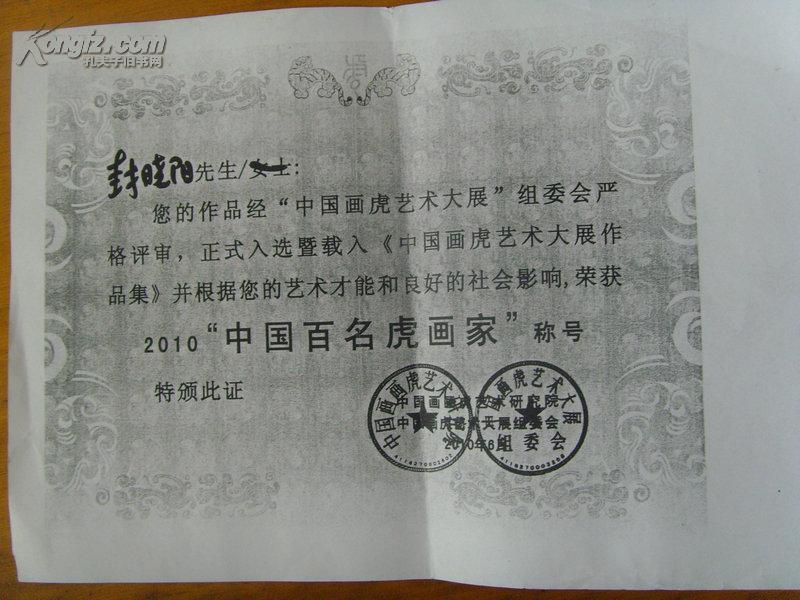 Kongfz.com
孔夫子旧书网
封晓阳先生/女士：
您的作品经“中国画虎艺术大展”组委会严
格评审，正式入选暨载入《中国画虎艺术大展作
品集》并根据您的艺术才能和良好的社会影响,荣获
2010“中国百名虎画家”称号
特颁此证
中国画画虎艺术研究院
中国画虎艺术大展组委会
2010年6月
组委会